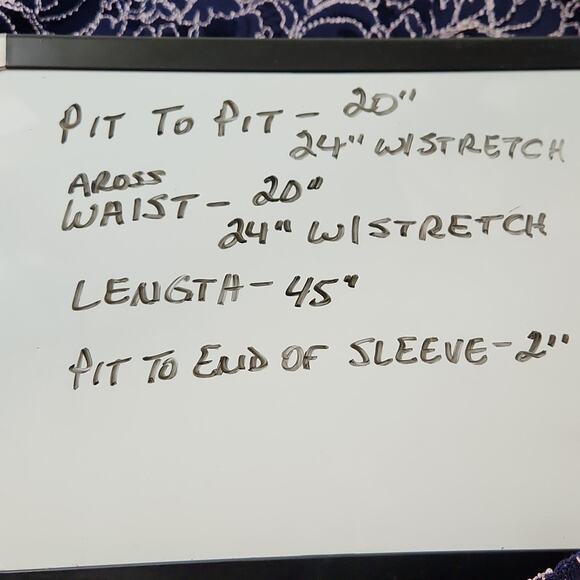 PIT TO PIT - 20"
24" W/STRETCH
AROSS
WAIST - 20"
24" W/STRETCH
LENGTH - 45"
PIT TO END OF SLEEVE - 2"